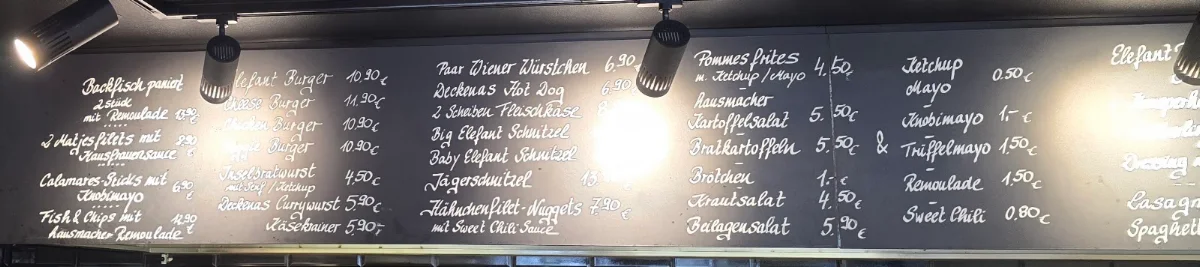 Backfisch paniert
2 Stück
mit Remoulade 13,90€
2 Matjesfilets mit 9,90
Hausfrauensauce €
Calamares-Sticks mit 6,90
Knobimayo €
Fish & Chips mit 14,90
Hausmacher Remoulade €
Elefant Burger 10,90€
Cheese Burger 11,90€
Chicken Burger 10,90€
Veggie Burger 10,90€
Inselbratwurst 4,50€
mit Senf / Ketchup
Deckenas Currywurst 5,90€
Käsekrainer 5,90,-
Paar Wiener Würstchen 6,90
Deckenas Hot Dog 6,90
2 Scheiben Fleischkäse
Big Elefant Schnitzel
Baby Elefant Schnitzel
Jägerschnitzel 13.
Hähnchenfilet-Nuggets 7,90
mit Sweet Chili Sauce €
Pommes frites
m. Ketchup / Mayo 4.50€
Hausmacher
Kartoffelsalat 5.50€
Bratkartoffeln 5,50€
Brötchen 1.-€
Krautsalat 4,50€
Beilagensalat 5,90€
&
Ketchup 0,50€
Mayo
Knobimayo 1,-€
Trüffelmayo 1,50€
Remoulade 1,50€
Sweet Chili 0,80€
Elefant
Dressing
Lasagn
Spaghett